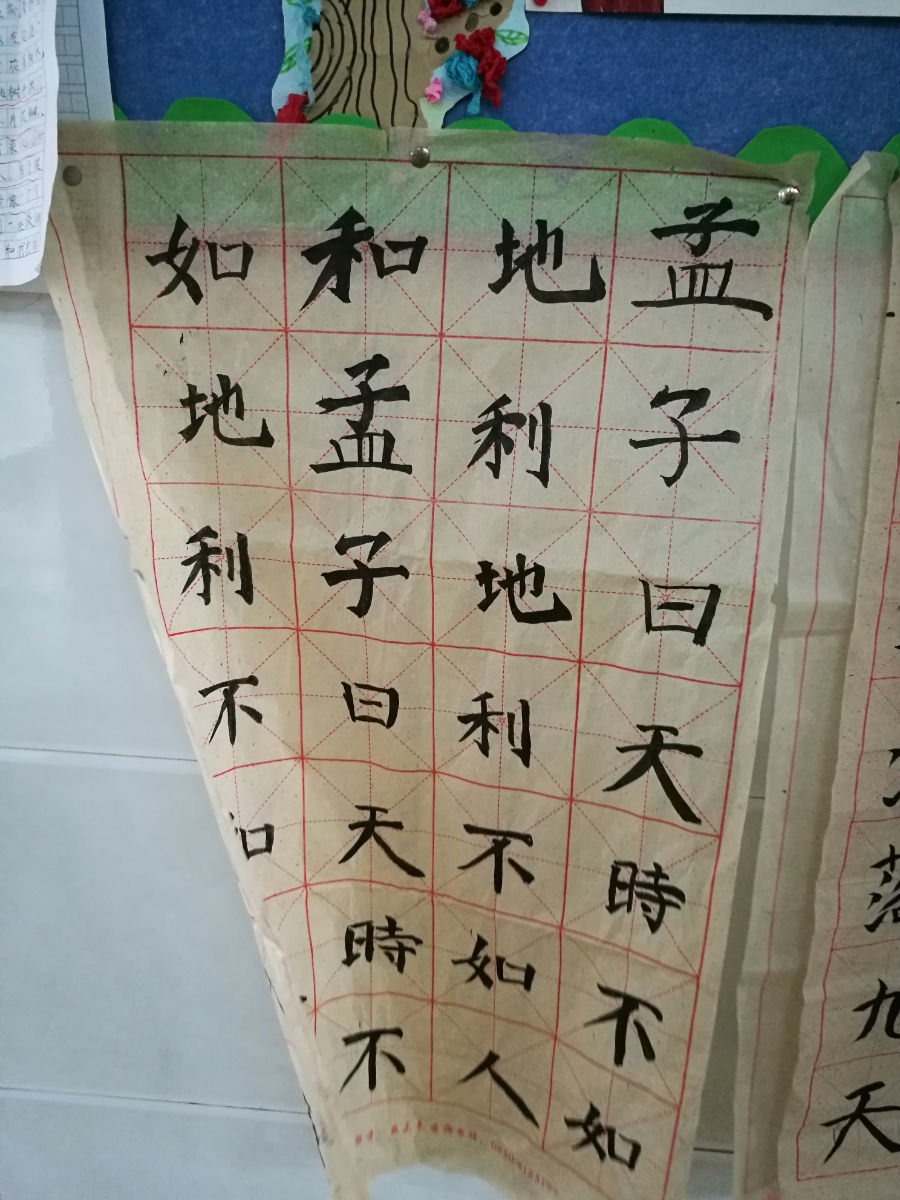 孟子曰天時不如
地利地利不如人
和孟子曰天時不
如地利不
落九天